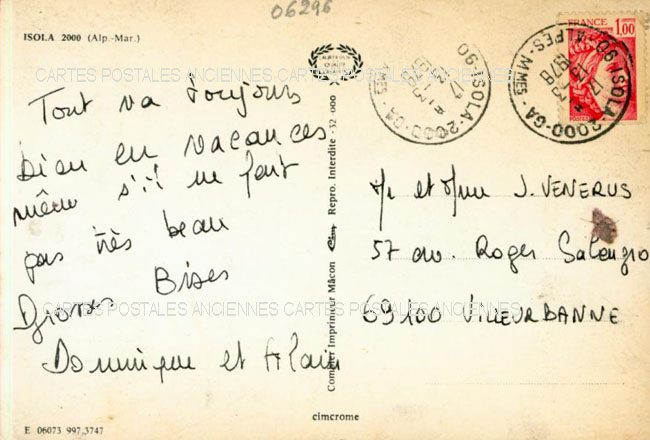 06296
ISOLA 2000 (Alp.-Mar.)
CARTES POSTALES ANCIENNES CARTES POSTALES ANCIENNES
Tout va toujours
bien en vacances
même s'il ne fait
pas très beau
Bises
Dominique et Alain
FRANCE 1,00
ISOLA-2000-GA
ALPES-MMES
ISOLA-2000-GA
Mr et Mme J. VENERUS
57 av. Roger Salengro
69100 VILLEURBANNE
CARTES POSTALES ANCIENNES CARTES POSTALES ANCIENNES
Combier Imprimeur Mâcon Cim Repro. Interdite - 32.000
cimcrome
E 06073 997.3747